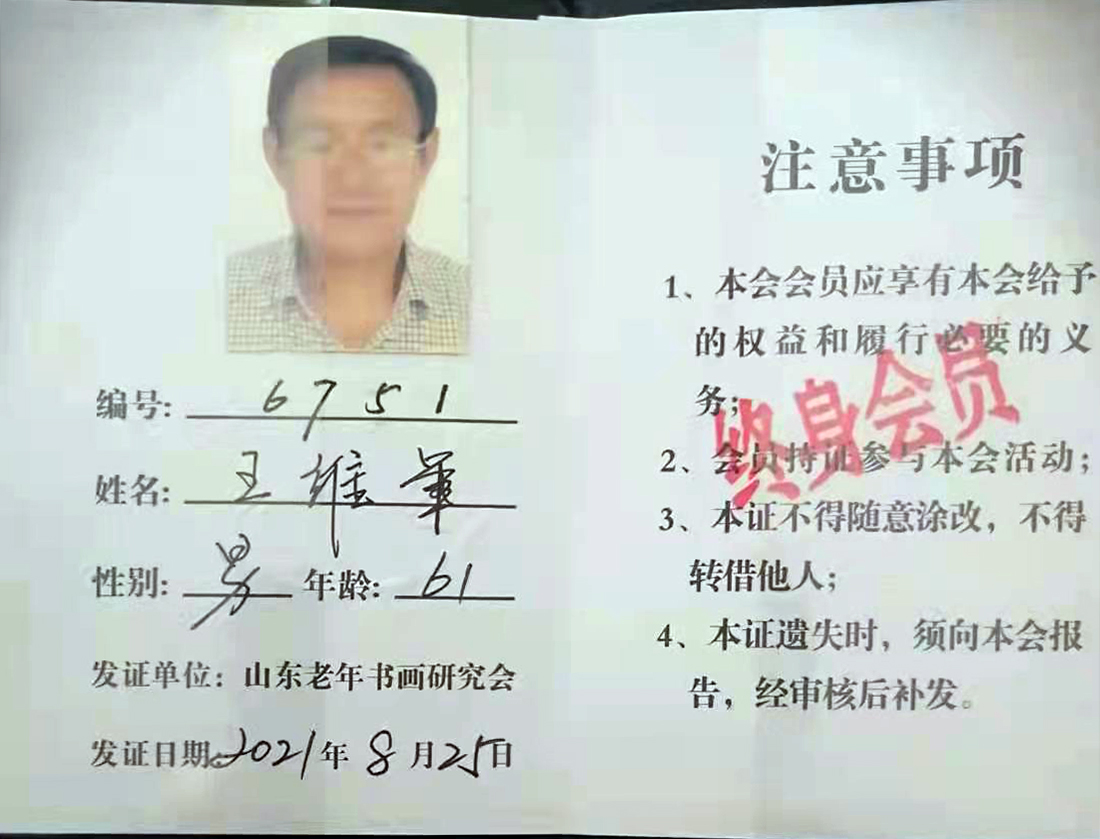 编号: 6751
姓名: 王维華
性别: 男 年龄: 61
发证单位: 山东老年书画研究会
发证日期: 2021年8月25日
注意事项
1、本会会员应享有本会给予
的权益和履行必要的义
务;
2、会员持证参与本会活动;
3、本证不得随意涂改，不得
转借他人;
4、本证遗失时，须向本会报
告，经审核后补发。
终身会员